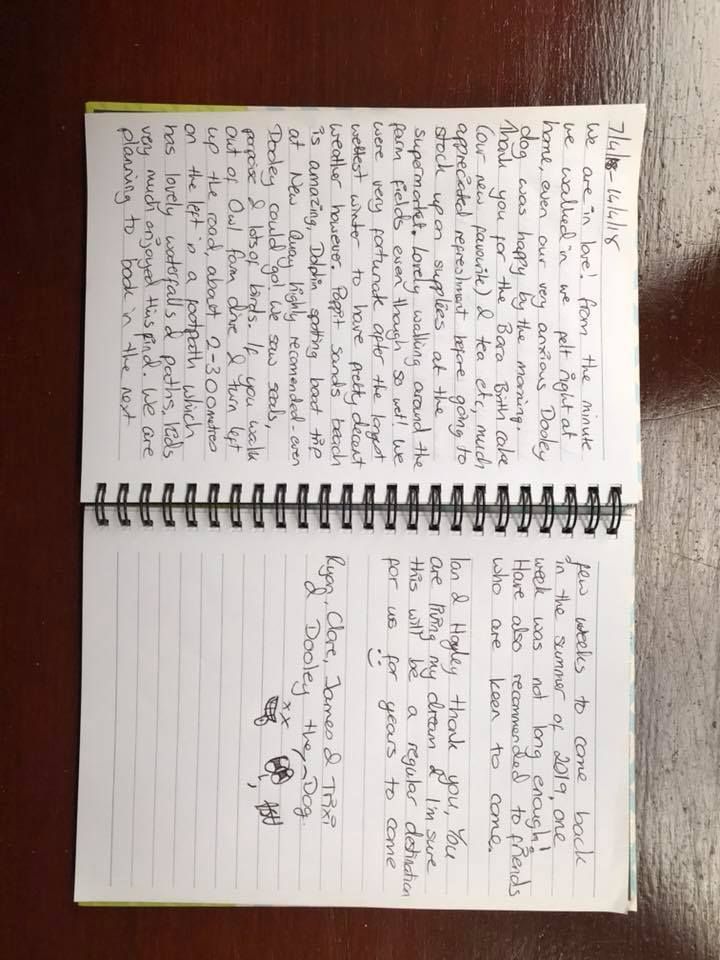 7/4/18 - 14/4/18
We are in love! From the minute
we walked in we felt right at
home, even our very anxious Dooley
dog was happy by the morning.
Thank you for the Bara Birth cake
(our new favourite) & tea etc, much
appreciated refreshment before going to
stock up on supplies at the
supermarket. Lovely walking around the
farm fields even though so wet! We
were very fortunate after the longest
wettest winter to have pretty decent
weather however. Poppit Sands beach
is amazing, Dolphin spotting boat trip
at New Quay highly recomended - even
Dooley could go! We saw seals,
porpoise & lots of birds. If you walk
out of Owl farm drive & turn left
up the road, about 2-300 metres
on the left is a footpath which
has lovely waterfalls & paths, kids
very much enjoyed this find. We are
planning to book in the next
few weeks to come back
in the summer of 2019, one
week was not long enough!
Have also recommended to friends
who are keen to come.
Ian & Hayley thank you, You
are living my dream & I'm sure
this will be a regular destination
for us for years to come
Ryan, Clare, James & Trixi
& Dooley the Dog.
xx